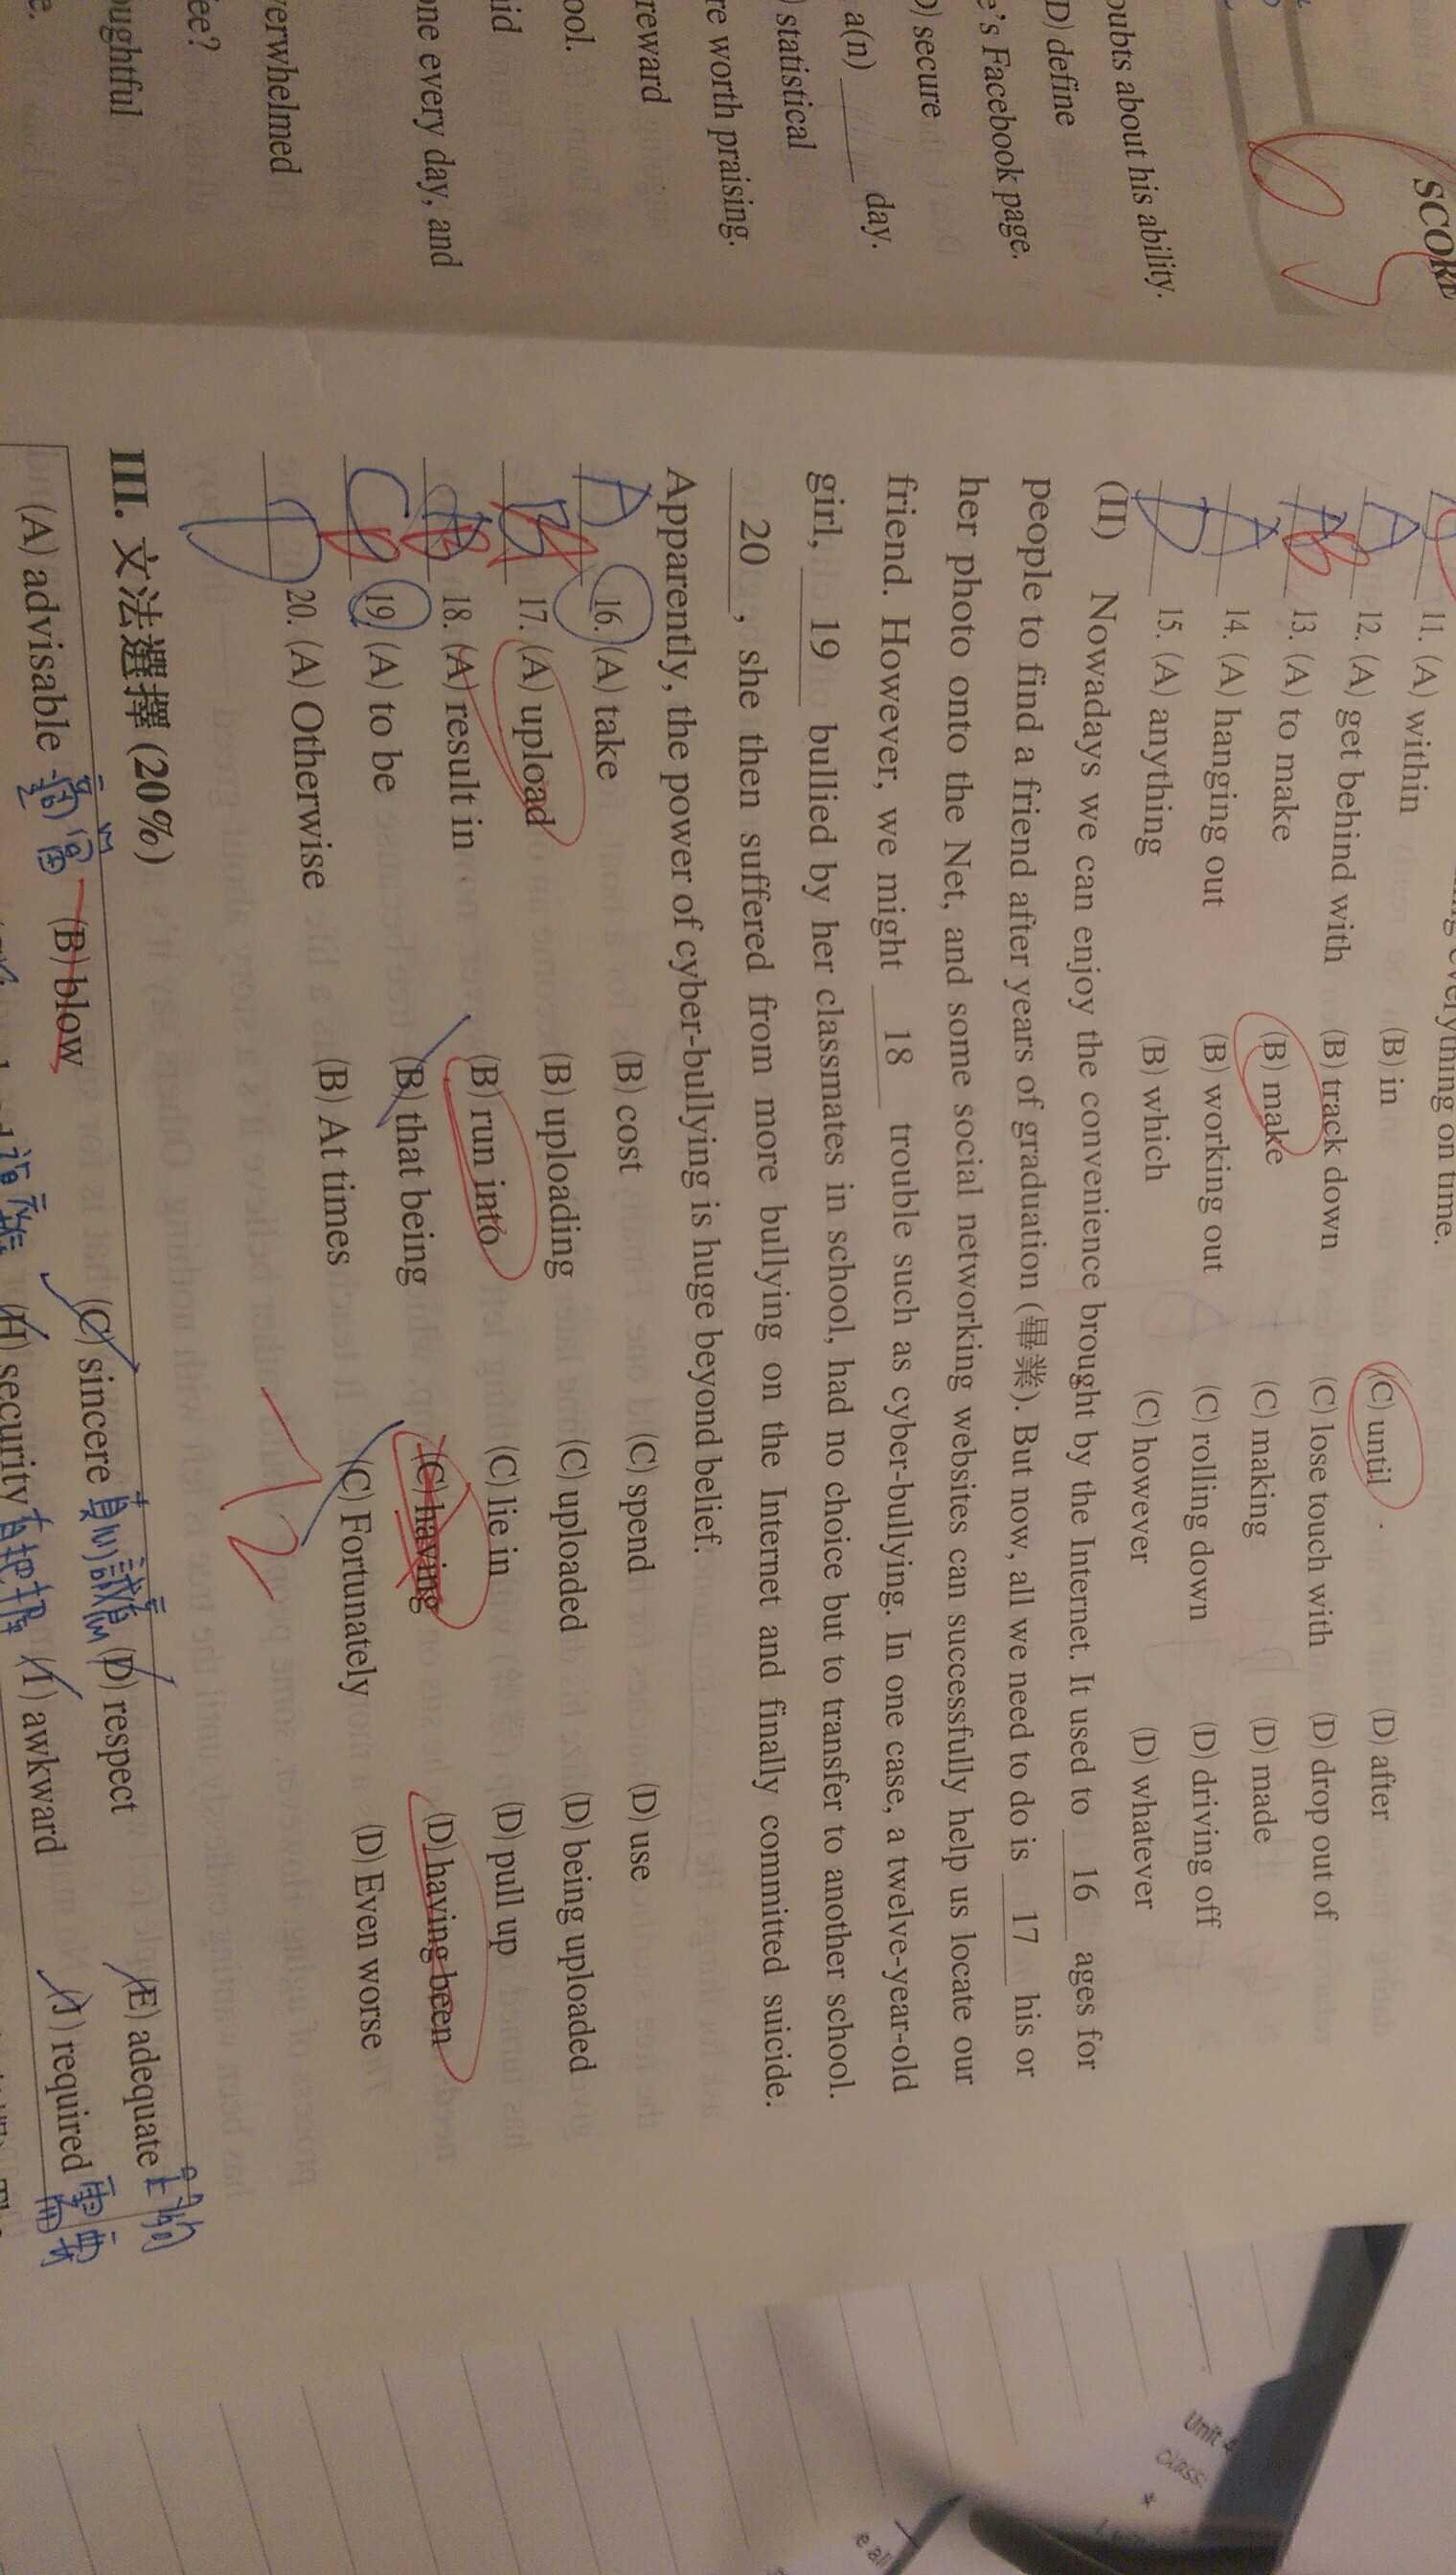 SCORE
oubts about his ability.
D) define
e's Facebook page.
D) secure
a(n) ____ day.
) statistical
re worth praising.
reward
ool.
aid
one every day, and
verwhelmed
ee?
oughtful
e.
everything on time.
11. (A) within (B) in (C) until (D) after
A 12. (A) get behind with (B) track down (C) lose touch with (D) drop out of
B 13. (A) to make (B) make (C) making (D) made
A 14. (A) hanging out (B) working out (C) rolling down (D) driving off
D 15. (A) anything (B) which (C) however (D) whatever
(II) Nowadays we can enjoy the convenience brought by the Internet. It used to 16 ages for
people to find a friend after years of graduation (畢業). But now, all we need to do is 17 his or
her photo onto the Net, and some social networking websites can successfully help us locate our
friend. However, we might 18 trouble such as cyber-bullying. In one case, a twelve-year-old
girl, 19 bullied by her classmates in school, had no choice but to transfer to another school.
20 , she then suffered from more bullying on the Internet and finally committed suicide.
Apparently, the power of cyber-bullying is huge beyond belief.
A 16. (A) take (B) cost (C) spend (D) use
B A 17. (A) upload (B) uploading (C) uploaded (D) being uploaded
B 18. (A) result in (B) run into (C) lie in (D) pull up
C D 19. (A) to be (B) that being (C) having (D) having been
D 20. (A) Otherwise (B) At times (C) Fortunately (D) Even worse
-12
III. 文法選擇 (20%)
(A) advisable (B) blow (C) sincere (D) respect (E) adequate
(H) security (I) awkward (J) required 需要
Unit 4
CLASS:
e all